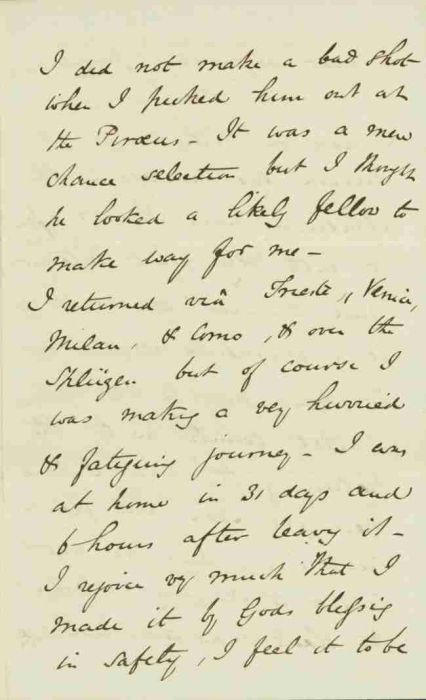 I did not make a bad shot
when I picked him out at
the Piræus - It was a mere
chance selection but I thought
he looked a likely fellow to
make way for me -
I returned viâ Trieste, Venice,
Milan, & Como, & over the
Splügen but of course I
was making a very hurried
& fatiguing journey - I was
at home in 31 days and
6 hours after leaving it -
I rejoice very much that I
made it by Gods blessing
in safety, I feel it to be